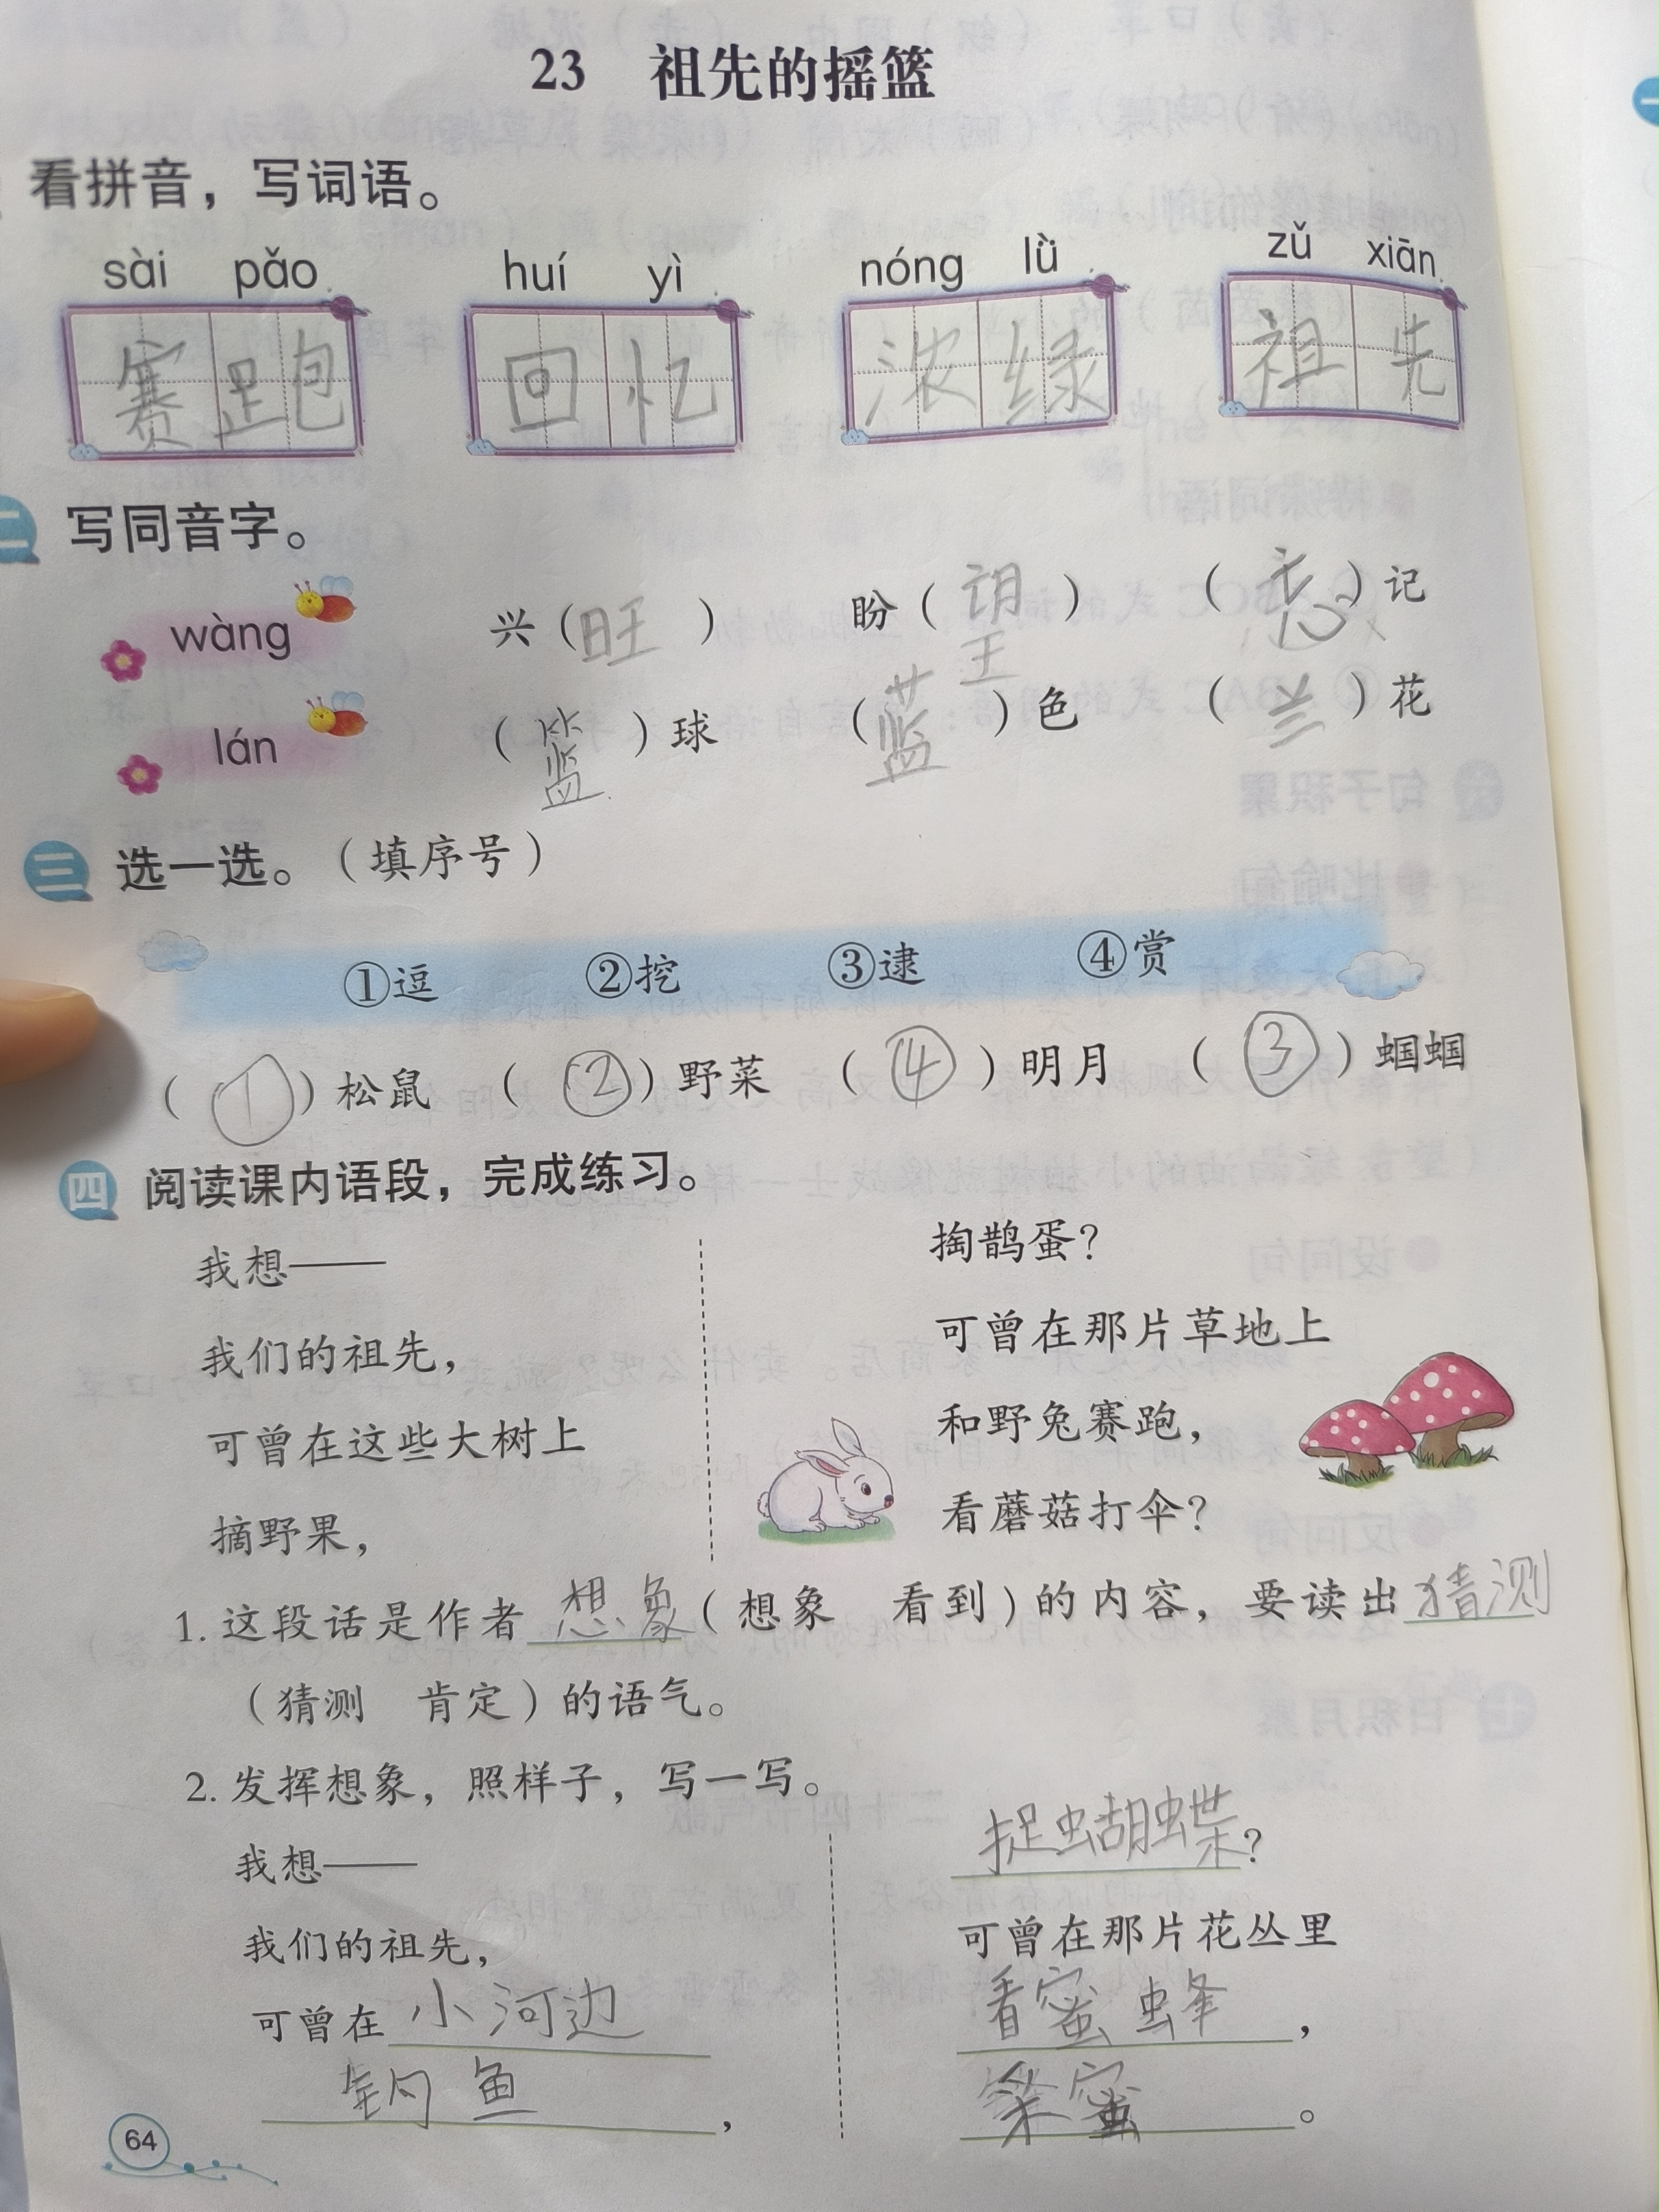 23 祖先的摇篮
看拼音，写词语。
sài pǎo huí yì nóng lǜ zǔ xiān
赛跑 回忆 浓绿 祖先
二 写同音字。
wàng 兴（旺） 盼（望） （忘）记
lán （篮）球 （蓝）色 （兰）花
三 选一选。（填序号）
①逗 ②挖 ③逮 ④赏
（①）松鼠 （②）野菜 （④）明月 （③）蝈蝈
四 阅读课内语段，完成练习。
我想——
我们的祖先，
可曾在这些大树上
摘野果，
掏鹊蛋？
可曾在那片草地上
和野兔赛跑，
看蘑菇打伞？
1. 这段话是作者想象（想象 看到）的内容，要读出猜测
（猜测 肯定）的语气。
2. 发挥想象，照样子，写一写。
我想——
我们的祖先，
可曾在小河边
钓鱼，
捉蝴蝶？
可曾在那片花丛里
看蜜蜂，
采蜜。
64